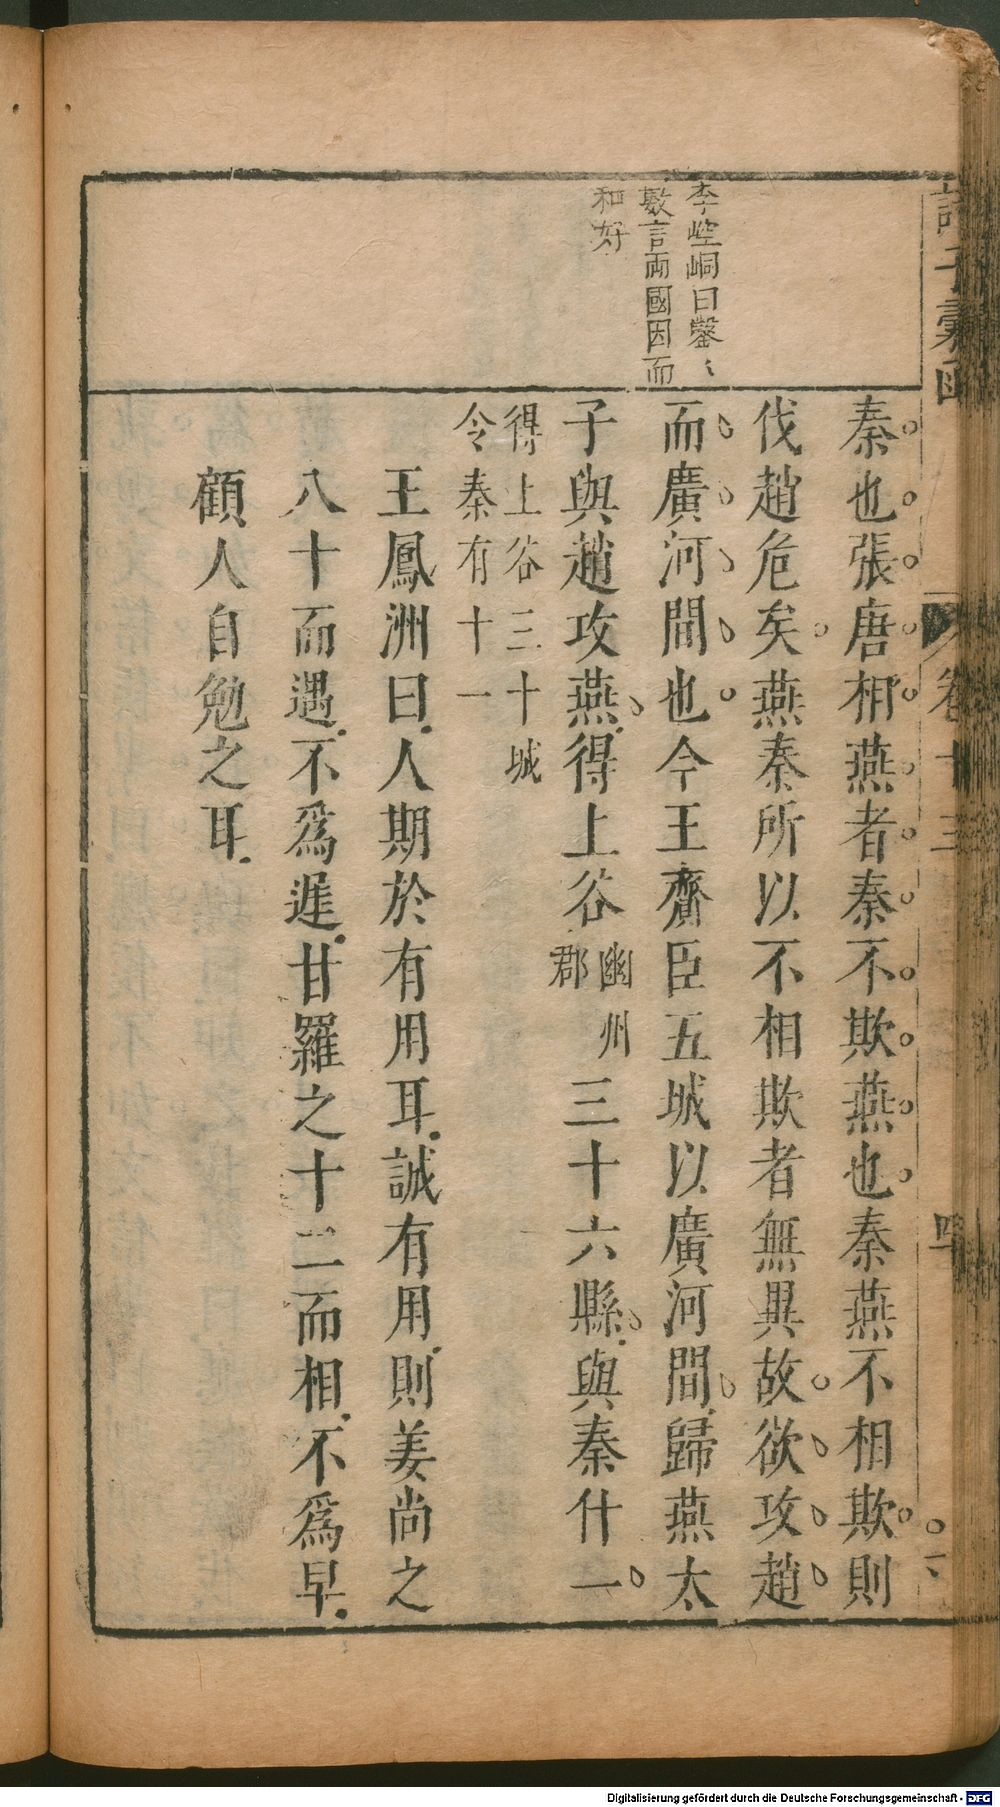 李崆峒曰鑿〻
數言兩國因而
和好
秦也張唐相燕者秦不欺燕也秦燕不相欺則
伐趙危矣燕秦所以不相欺者無異故欲攻趙
而廣河間也今王齎臣五城以廣河間歸燕太
子與趙攻燕得上谷幽州郡三十六縣與秦什一
得上谷三十城
令秦有十一
王鳳洲曰人期於有用耳誠有用則姜尚之
八十而遇不為遲甘羅之十二而相不為早
顧人自勉之耳
卷十三
Digitalisierung gefördert durch die Deutsche Forschungsgemeinschaft - DFG